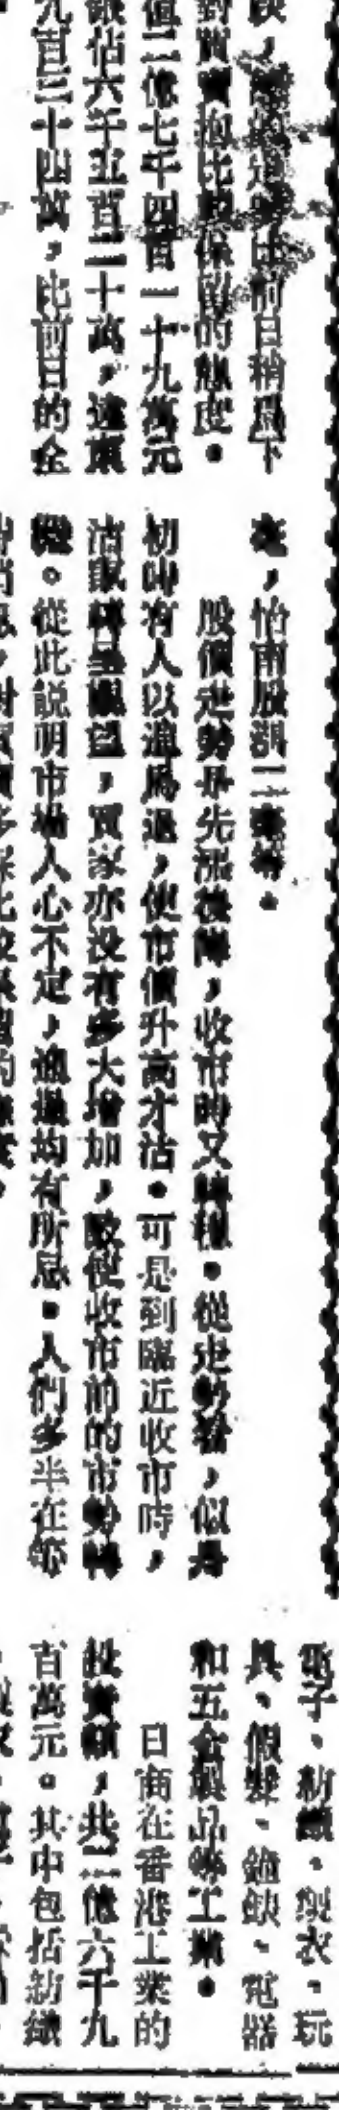 比前日稍爲下
對買賣抱比較保留的態度。
值二億七千四百一十九萬元
佔六千五百二十萬，遠東
九百三十四萬，比前日的金
毫，怡南股跌二毫等。
股價走勢是先漲後降，收市時又轉穩。從走勢看，似是
初時有人以進爲退，使市價升高才沽。可是到臨近收市時，
沽家轉呈觀望，買家亦没有多大增加，致使收市前的市勢轉
。從此説明市場人心不定，進退均有所忌。人們多半在等
電子、紡織、製衣、玩
具、假髮、鐘錶、電器
和五金製品等工業。
日商在香港工業的
投資額，共二億六千九
百萬元。其中包括紡織